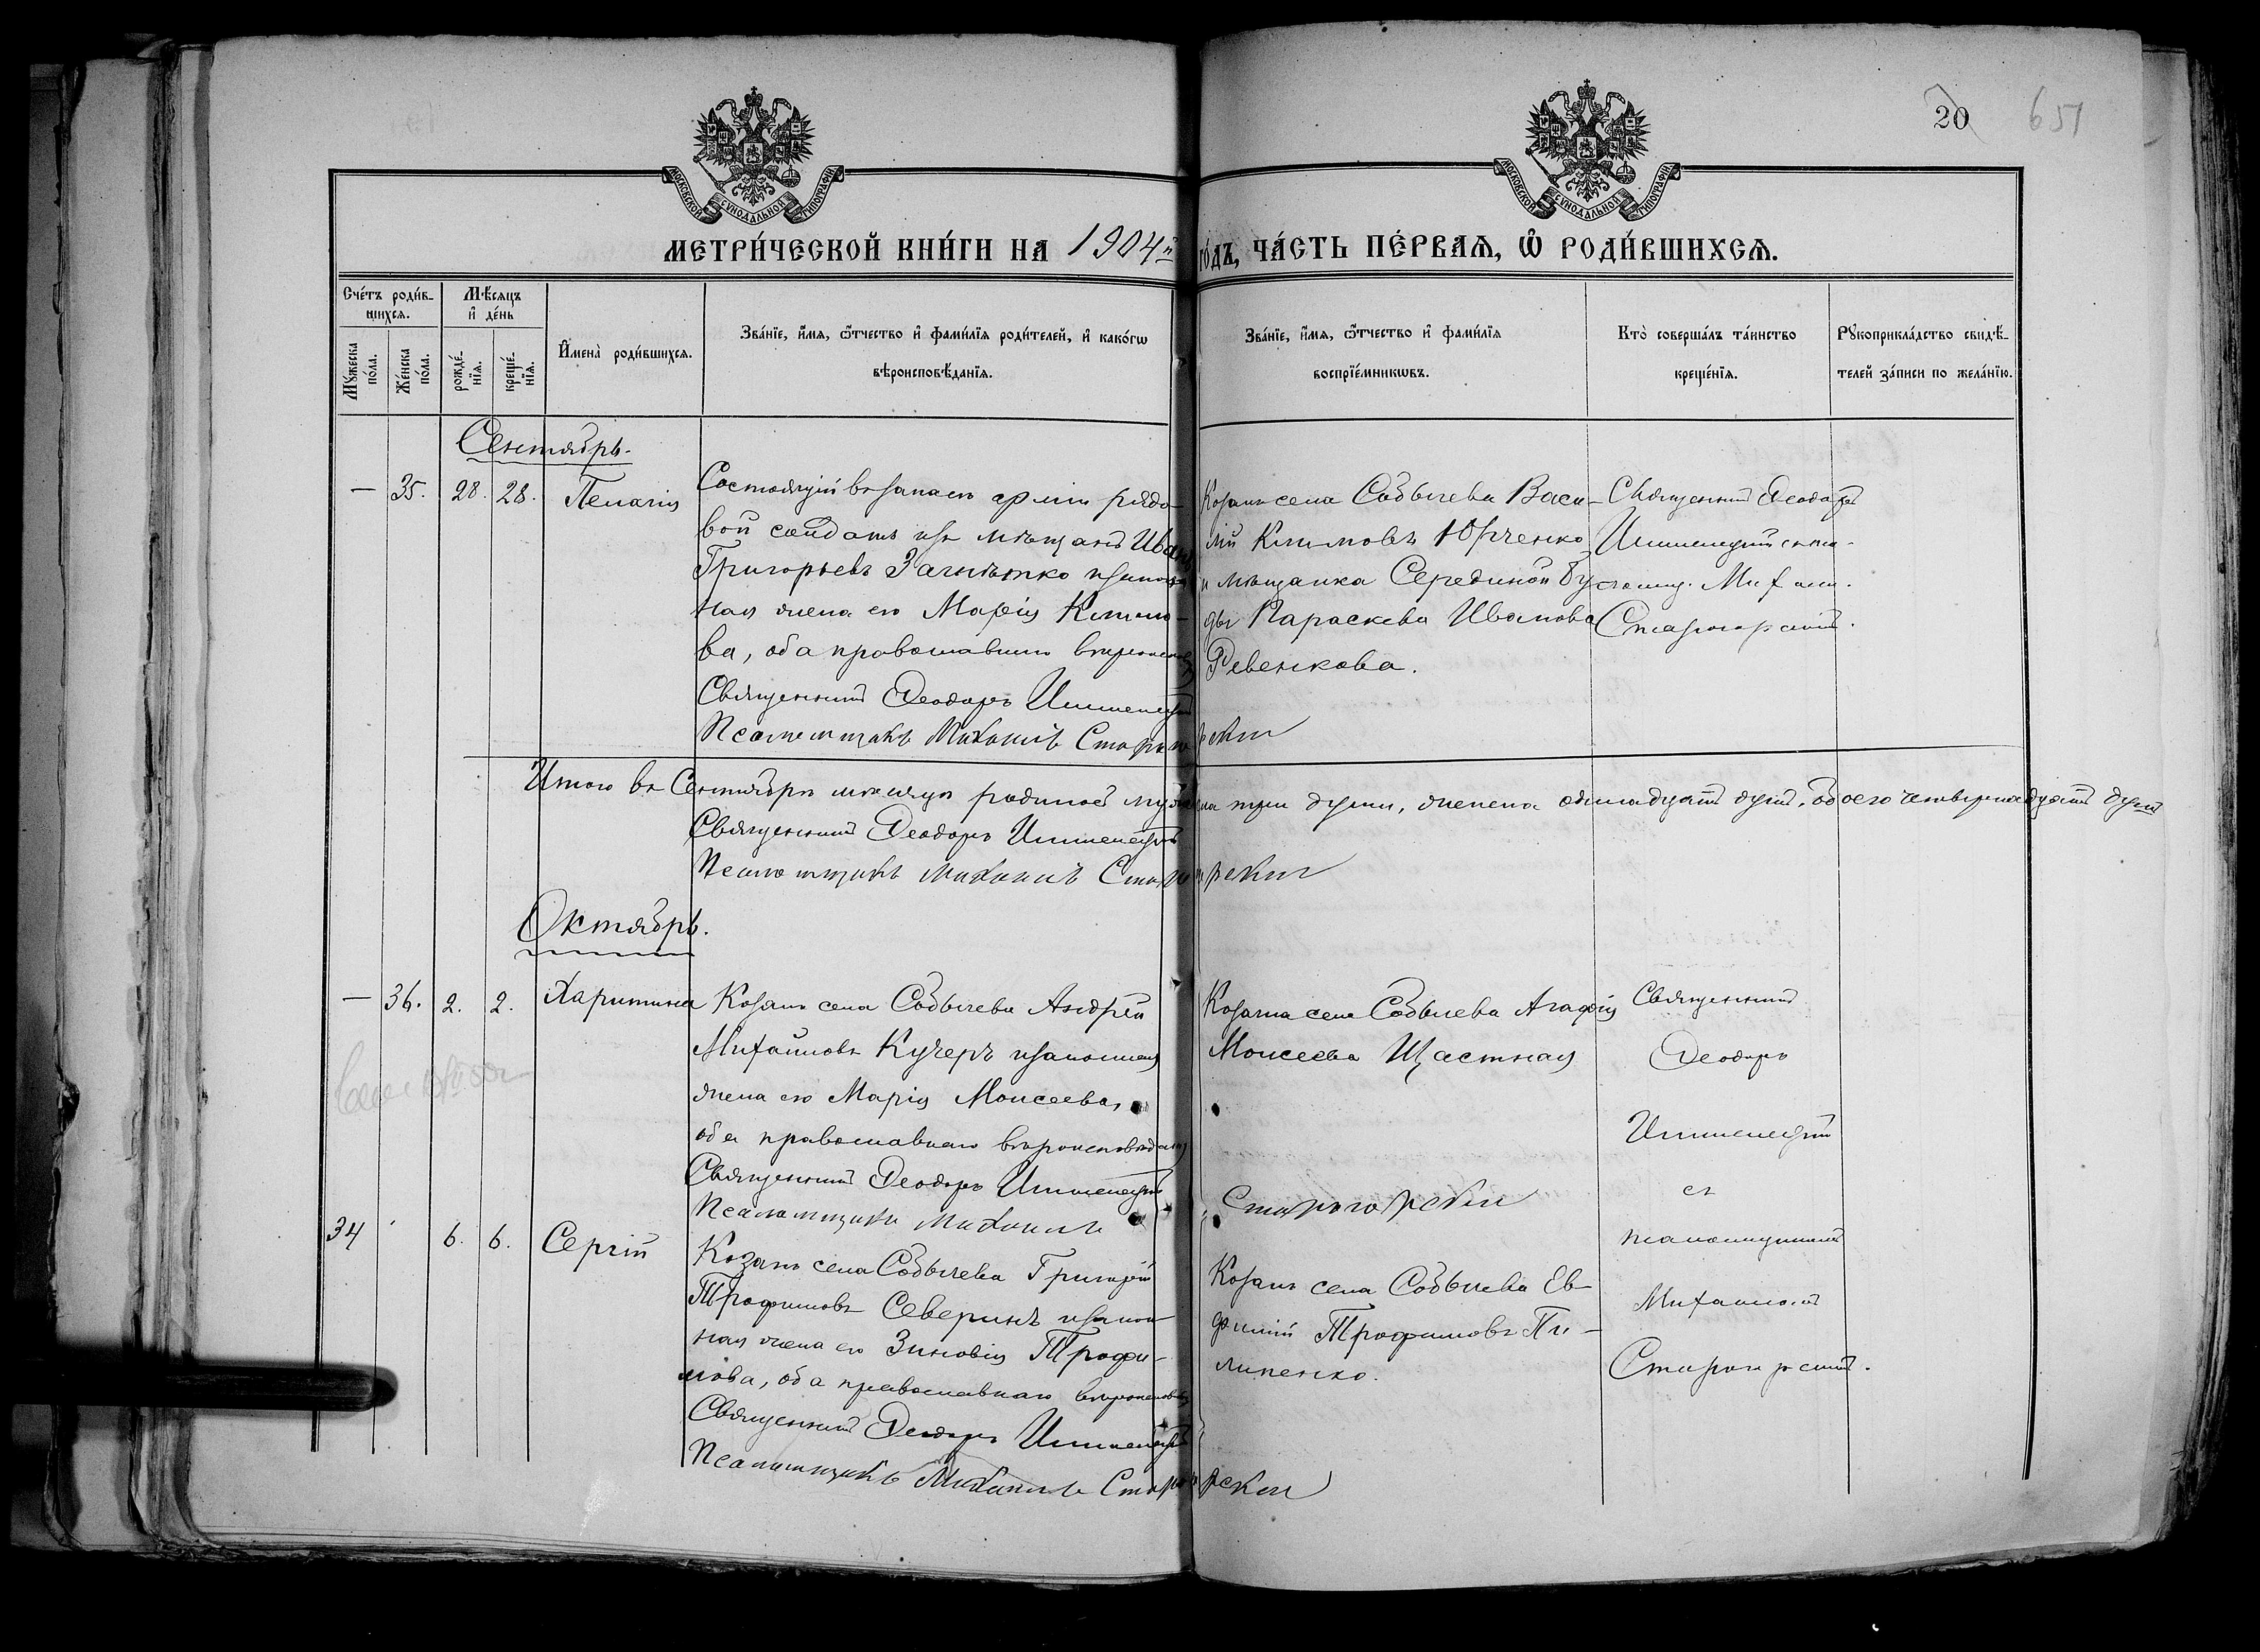 20 651
МОСКОВСКОЙ СѴНОДАЛЬНОЙ ТИПОГРАФІИ
МОСКОВСКОЙ СѴНОДАЛЬНОЙ ТИПОГРАФІИ
МЕТРИ́ЧЕСКОЙ КНИ́ГИ НА 1904й го́дъ, ЧА́СТЬ ПЕ́РВАѦ, Ѡ҆ РОДИ́ВШИХСѦ.
Сче́тъ роди́в-
шихсѧ.
Мꙋ́жеска по́ла.
Же́нска по́ла.
Мѣ́сѧцъ
и҆ де́нь
рожде́-
нїѧ.
креще́-
нїѧ.
И҆мена̀ роди́вшихсѧ.
Зва́нїе, и҆́мѧ, ѻ҆́тчество и҆ фами́лїѧ роди́телей, и҆ како́гѡ
вѣроисповѣ́данїѧ.
Зва́нїе, и҆́мѧ, ѻ҆́тчество и҆ фами́лїѧ
воспрїе́мникѡвъ.
Кто̀ соверша́лъ та́инство
креще́нїѧ.
Рꙋкоприкла́дство свидѣ́-
телей за́писи по жела́нїю.
Сентябрь.
— 35. 28. 28. Пелагія
Состоящій въ запасѣ арміи рядо-
вой солдатъ изъ мѣщанъ Иванъ
Григорьевъ Загнѣтко и законная
жена его Марія Климо-
ва, оба православнаго вѣроисповѣд
Священникъ Ѳеодоръ
Псаломщикъ Михаилъ Старогорскій
Козакъ села Собычева Васи-
лій Климовъ Юрченко
и мѣщанка Серединой Бу-
ды Параскева Иванова
Ревенкова.
Священникъ Ѳеодоръ
съ пса-
ломщ. Михаил.
Старогорскимъ.
Итого въ Сентябрѣ мѣсяцѣ родилось мужеска три души, женска одинадцать душъ, обоего четырнадцать душъ
Священникъ Ѳеодоръ
Псаломщикъ Михаилъ Старогорскій
Октябрь.
— 36. 2. 2. Харитина
Козакъ села Собычева Андрей
Михайловъ Кучеръ и законная
жена его Марія Моисеева,
оба православнаго вѣроисповѣданія
Священникъ Ѳеодоръ
Псаломщикъ Михаилъ Старогорскій
Козачка села Собычева Агафія
Моисеева Щастная
Священникъ
Ѳеодоръ
съ
псаломщикомъ
Михаиломъ
Старогорскимъ.
34 6. 6. Сергій
Козакъ села Собычева Григорій
Трофимовъ Северинъ и закон-
ная жена его Зиновія Трофи-
мова, оба православнаго вѣроисповѣд
Священникъ Ѳеодоръ
Псаломщикъ Михаилъ Старогорскій
Козакъ села Собычева Ев-
фимій Трофимовъ Пи-
липенко.